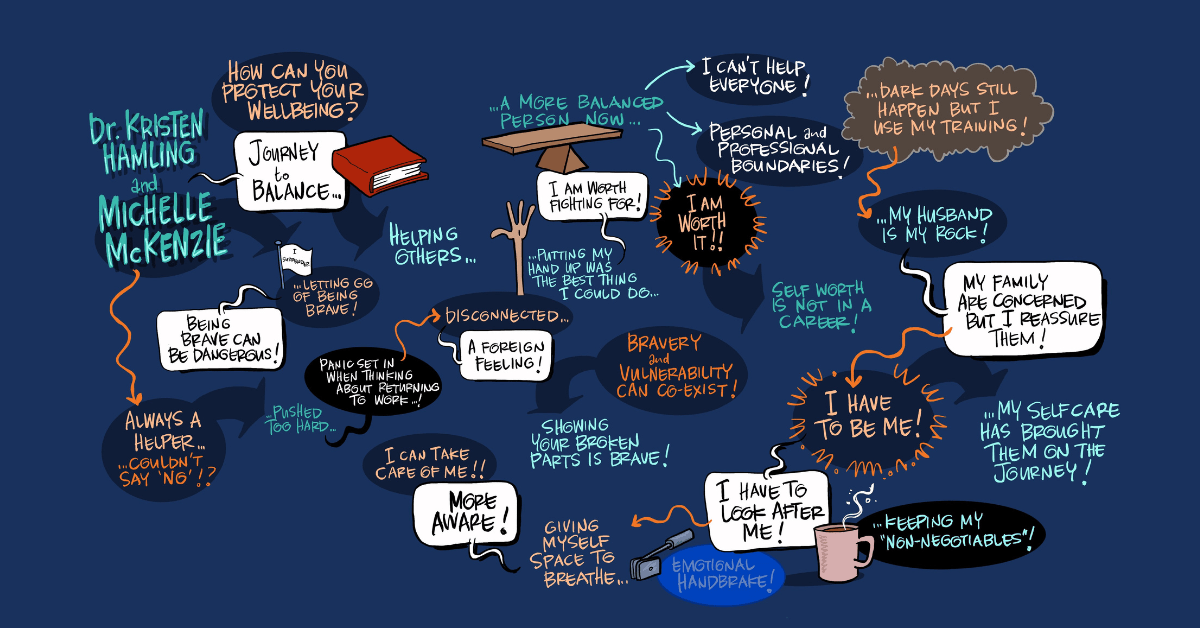 HOW CAN YOU
PROTECT YOUR
WELLBEING?
DR. KRISTEN
HAMLING
and
MICHELLE
MCKENZIE
JOURNEY
to
BALANCE...
HELPING
OTHERS...
I
SURRENDER
...LETTING GO
OF BEING
BRAVE!
BEING
BRAVE CAN
BE DANGEROUS!
ALWAYS A
HELPER...
...COULDN'T
SAY 'NO'!?
...PUSHED
TOO HARD...
PANIC SET IN
WHEN THINKING
ABOUT RETURNING
TO WORK...!
DISCONNECTED...
A FOREIGN
FEELING!
...PUTTING MY
HAND UP WAS
THE BEST THING
I COULD DO...
I AM WORTH
FIGHTING FOR!
...A MORE BALANCED
PERSON NOW...
I CAN'T HELP
EVERYONE!
PERSONAL and
PROFESSIONAL
BOUNDARIES!
I AM
WORTH
IT!!
SELF WORTH
IS NOT IN A
CAREER!
BRAVERY
and
VULNERABILITY
CAN CO-EXIST!
SHOWING
YOUR BROKEN
PARTS IS BRAVE!
I CAN TAKE
CARE OF ME!!
MORE
AWARE!
GIVING
MYSELF
SPACE TO
BREATHE...
...DARK DAYS STILL
HAPPEN BUT I
USE MY TRAINING!
...MY HUSBAND
IS MY ROCK!
MY FAMILY
ARE CONCERNED
BUT I REASSURE
THEM!
I HAVE
TO BE ME!
...MY SELFCARE
HAS BROUGHT
THEM ON THE
JOURNEY!
I HAVE TO
LOOK AFTER
ME!
...KEEPING MY
"NON-NEGOTIABLES"!
EMOTIONAL
HANDBRAKE!